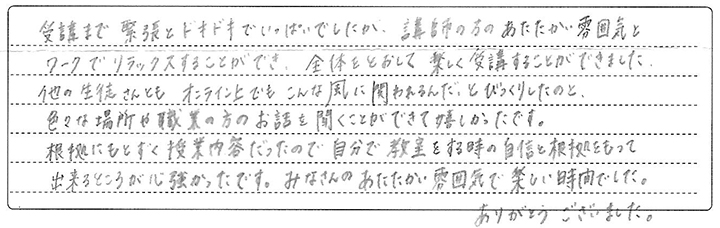 受講まで 緊張とドキドキでいっぱいでしたが、講師の方のあたたかい雰囲気と
ワークでリラックスすることができ、全体をとおして 楽しく受講することができました。
他の生徒さんとも オンライン上でも こんな風に関われるんだ、とびっくりしたのと、
色々な場所や職業の方のお話を聞くことができて嬉しかったです。
根拠にもとずく授業内容だったので自分で教室をする時の自信と根拠をもって
出来るところが心強かったです。みなさんのあたたかい雰囲気で楽しい時間でした。
ありがとうございました。